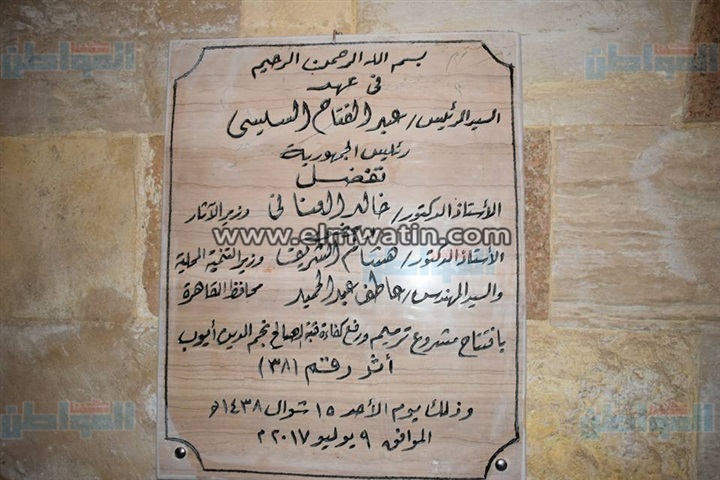 بسم الله الرحمن الرحيم
في عهد
السيد الرئيس / عبد الفتاح السيسي
رئيس الجمهورية
تفضل
الأستاذ الدكتور / خالد العناني وزير الآثار
www.elmwatin.com
الأستاذ الدكتور / هشام الشريف وزير التنمية المحلية
والسيد المهندس / عاطف عبد الحميد محافظ القاهرة
بافتتاح مشروع ترميم ورفع كفاءة قبة الصالح نجم الدين أيوب
أثر رقم (٣٨)
وذلك يوم الأحد ١٥ شوال ١٤٣٨هـ
الموافق ٩ يوليو ٢٠١٧م
المواطن
المواطن
المواطن
المواطن